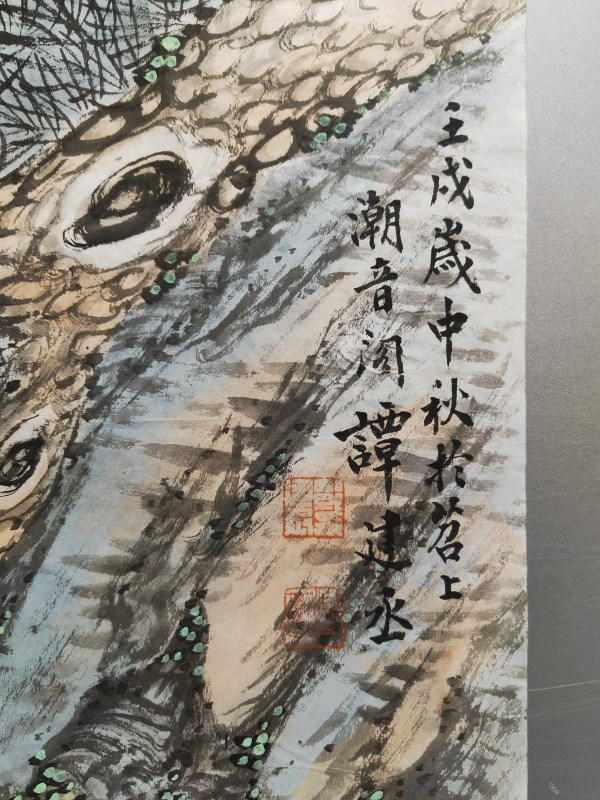 壬戌歲中秋於苕上
潮音阁譚建丞